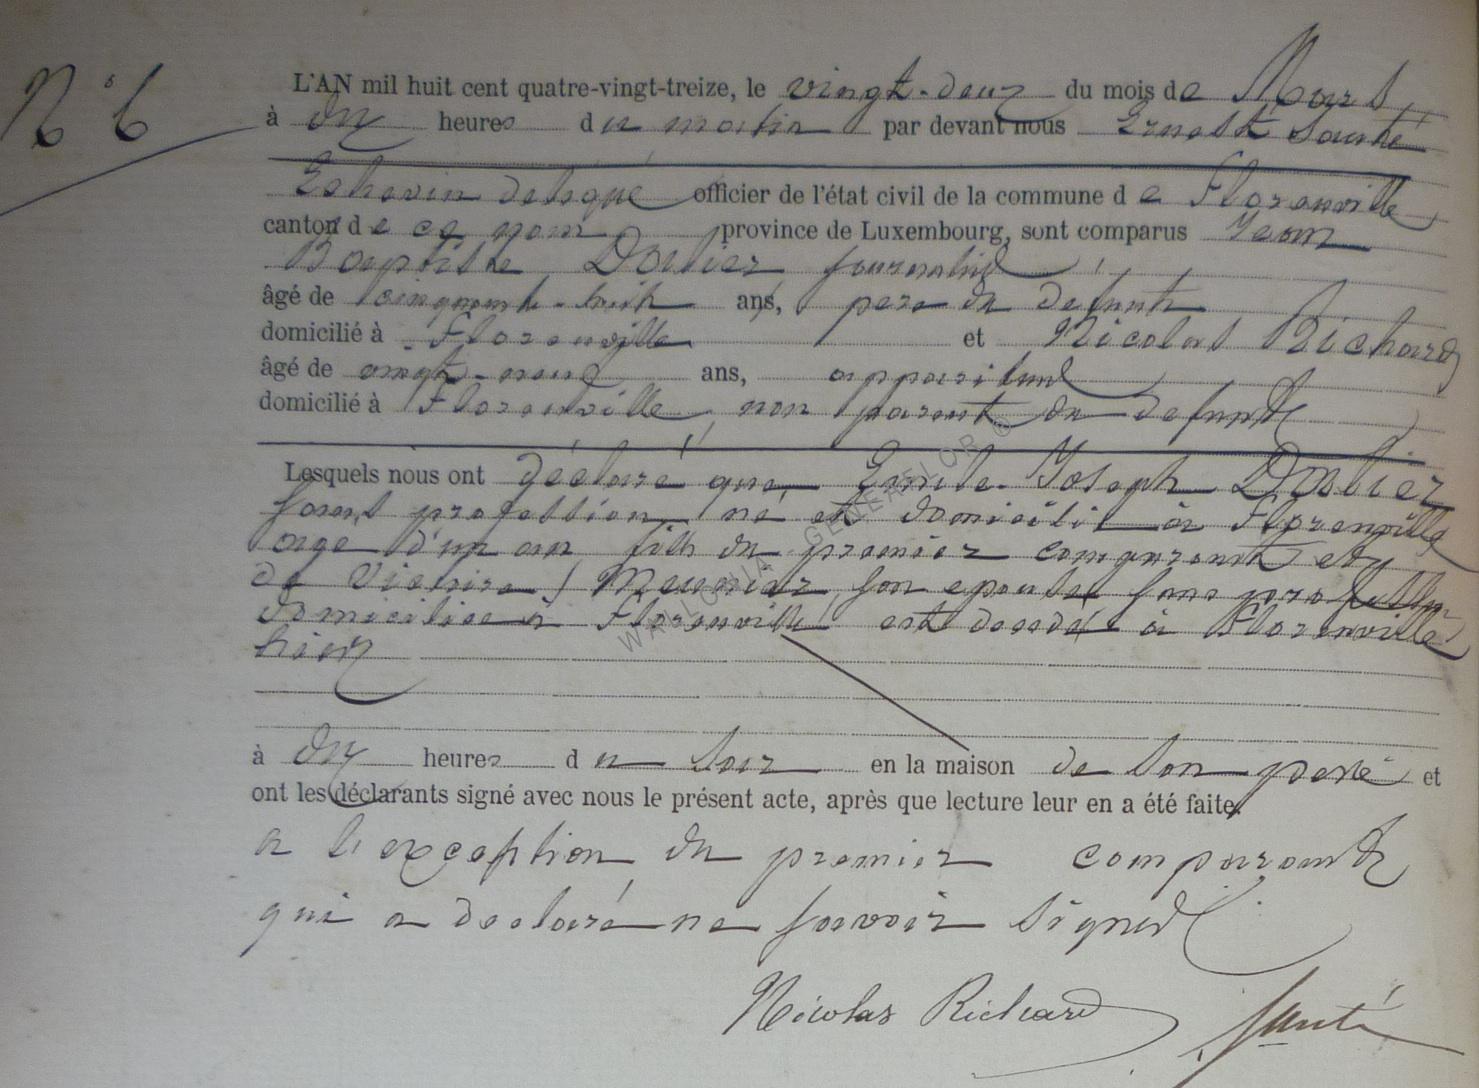 N° 6
L'AN mil huit cent quatre-vingt-treize, le vingt-deux du mois de Mars,
à dix heures du matin par devant nous Ernest Santé
Echevin délégué officier de l'état civil de la commune de Florenville
canton de ce nom, province de Luxembourg, sont comparus Jean
Baptiste journalier
âgé de cinquante-huit ans, père du defunt
domicilié à Florenville et Nicolas Richard
âgé de vingt-neuf ans, appariteur
domicilié à Florenville, non parent du defunt
Lesquels nous ont déclaré que Emile Joseph
sans profession né et domicilié à Florenville
age d'un an fils du premier comparant et
de Meunier, son epouse sans profession
domiciliée à Florenville est decedé à Florenville
hier
à dix heures du soir en la maison de son père et
ont les déclarants signé avec nous le présent acte, après que lecture leur en a été faite,
a l'exception du premier comparant
qui a declaré ne savoir signer
Nicolas Richard Santé
WALLONIA GENEAFLOR ©